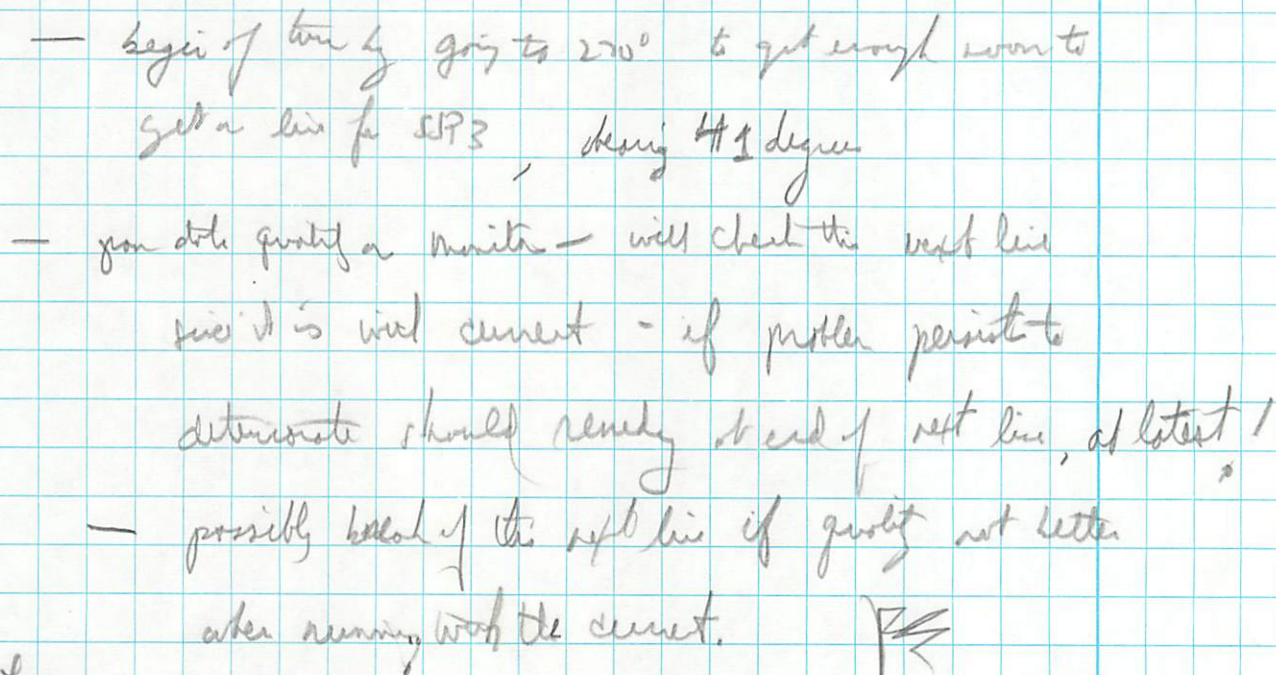 — begin of turn by going to 270° to get enough room to
get a line for SSP3, bearing 41 degree
— poor data quality on monitor — will check this next line
since it is with current - if problem persists to
deteriorate should remedy at end of next line, at latest!
— possibly break of this next line if quality not better
when running with the current.